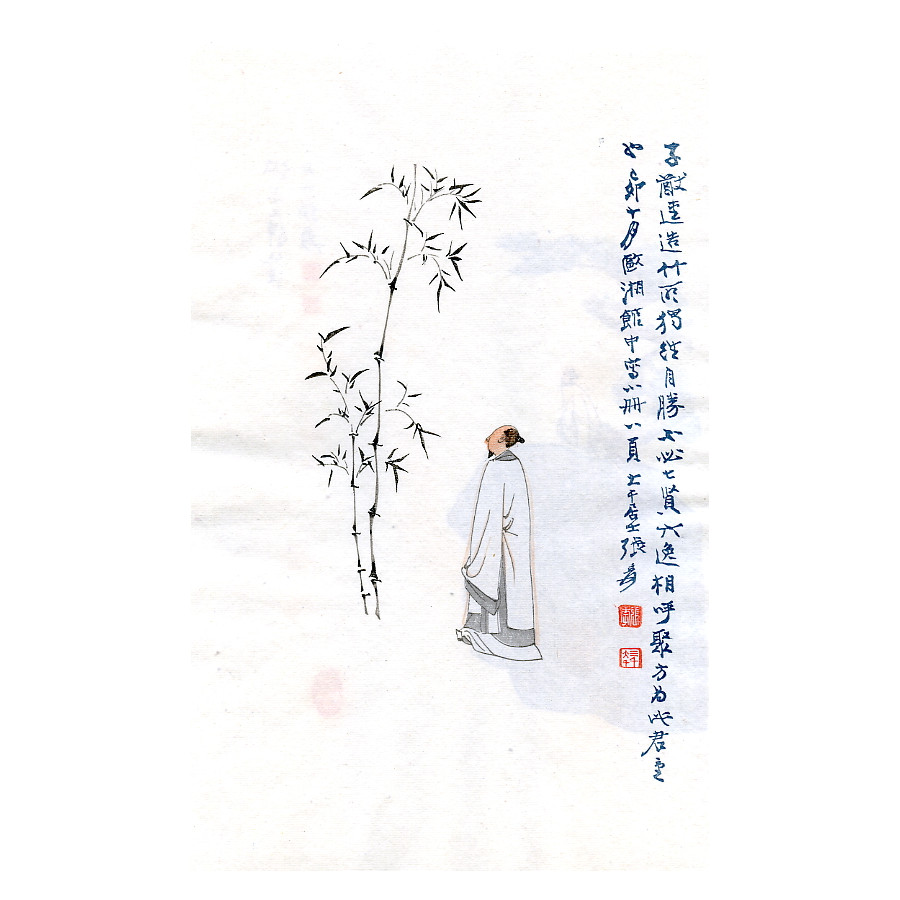 子猷逕造竹所獨往自勝不必七賢六逸相呼聚方為此君重
也己卯十月甌湘館中寫小冊八頁大千居士張爰
張爰